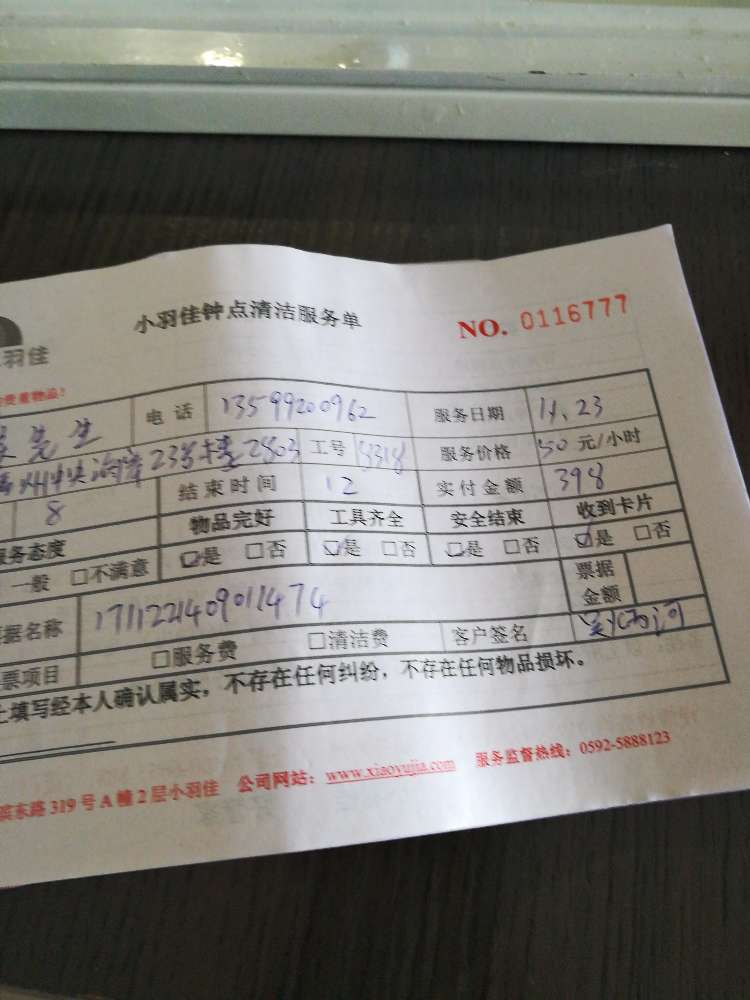 小羽佳钟点清洁服务单
NO. 0116777
羽佳
贵重物品!
先生 电话 13599200962 服务日期 11.23
23号楼2803 工号 8318 服务价格 50元/小时
8 结束时间 12 实付金额 398
服务态度 物品完好 工具齐全 安全结束 收到卡片
一般 □不满意 ☑是 □否 ☑是 □否 ☑是 □否 ☑是 □否
据名称 171122140901474 票据金额
票项目 □服务费 □清洁费 客户签名
上填写经本人确认属实，不存在任何纠纷，不存在任何物品损坏。
滨东路319号A幢2层小羽佳 公司网站：www.xiaoyujia.com 服务监督热线：0592-5888123